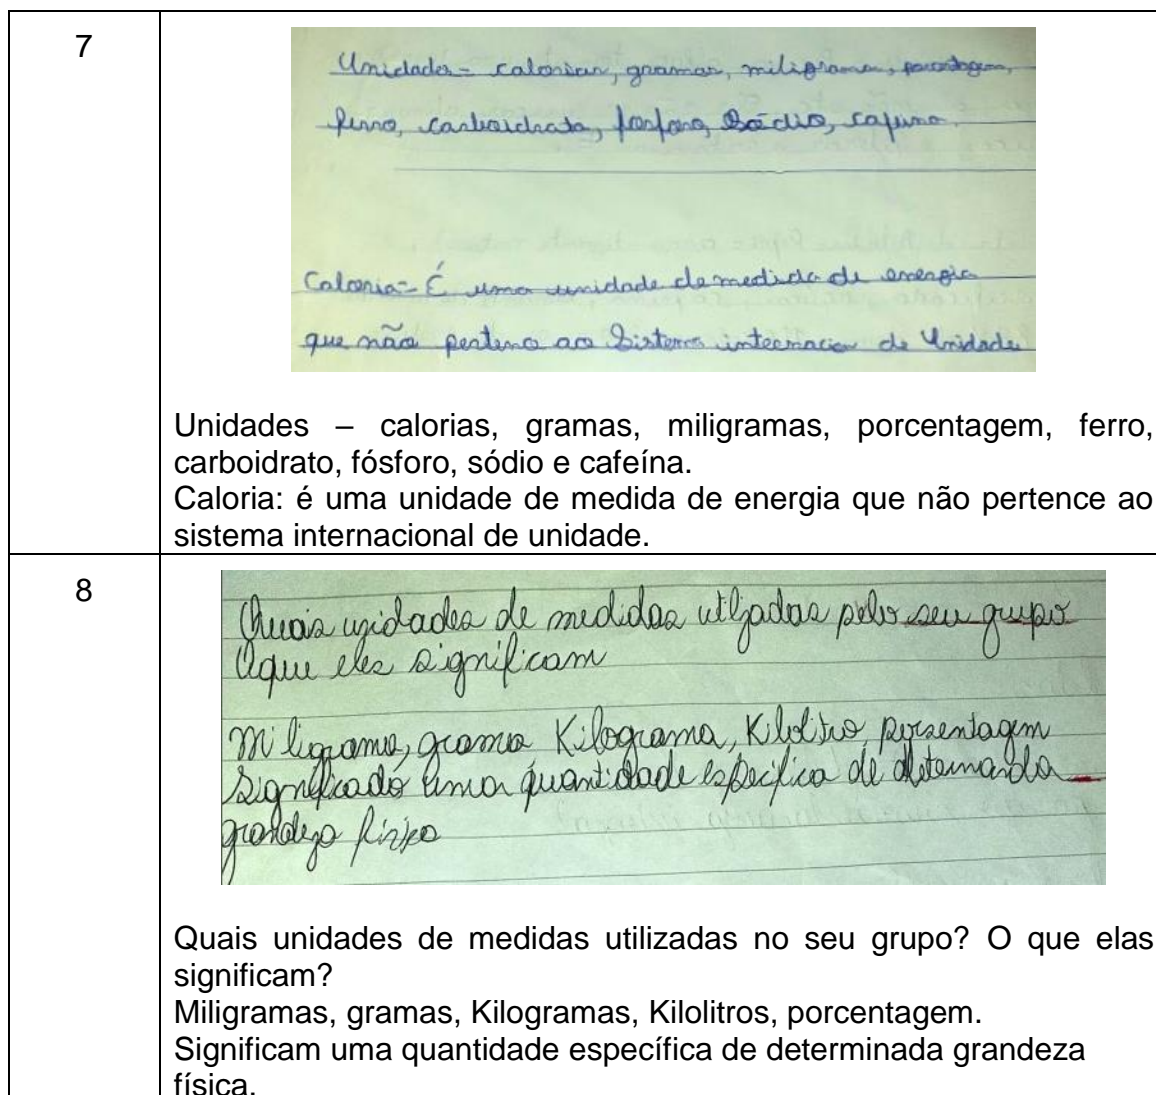 7
Unidades = calorias, gramas, miligramas, porcentagem,
ferro, carboidrato, fosforo, Sódio, cafeina.
Caloria = É uma unidade de medida de energia
que não pertence ao Sistema internacion de Unidade
Unidades – calorias, gramas, miligramas, porcentagem, ferro,
carboidrato, fósforo, sódio e cafeína.
Caloria: é uma unidade de medida de energia que não pertence ao
sistema internacional de unidade.
8
Quais unidades de medidas utlizadas pelo seu grupo
Oque eles significam
Miligrama, grama Kilograma, Kilolitro, persentagem
Significado uma quantidade especifica de determanda
grandeza fisica
Quais unidades de medidas utilizadas no seu grupo? O que elas
significam?
Miligramas, gramas, Kilogramas, Kilolitros, porcentagem.
Significam uma quantidade específica de determinada grandeza
física.